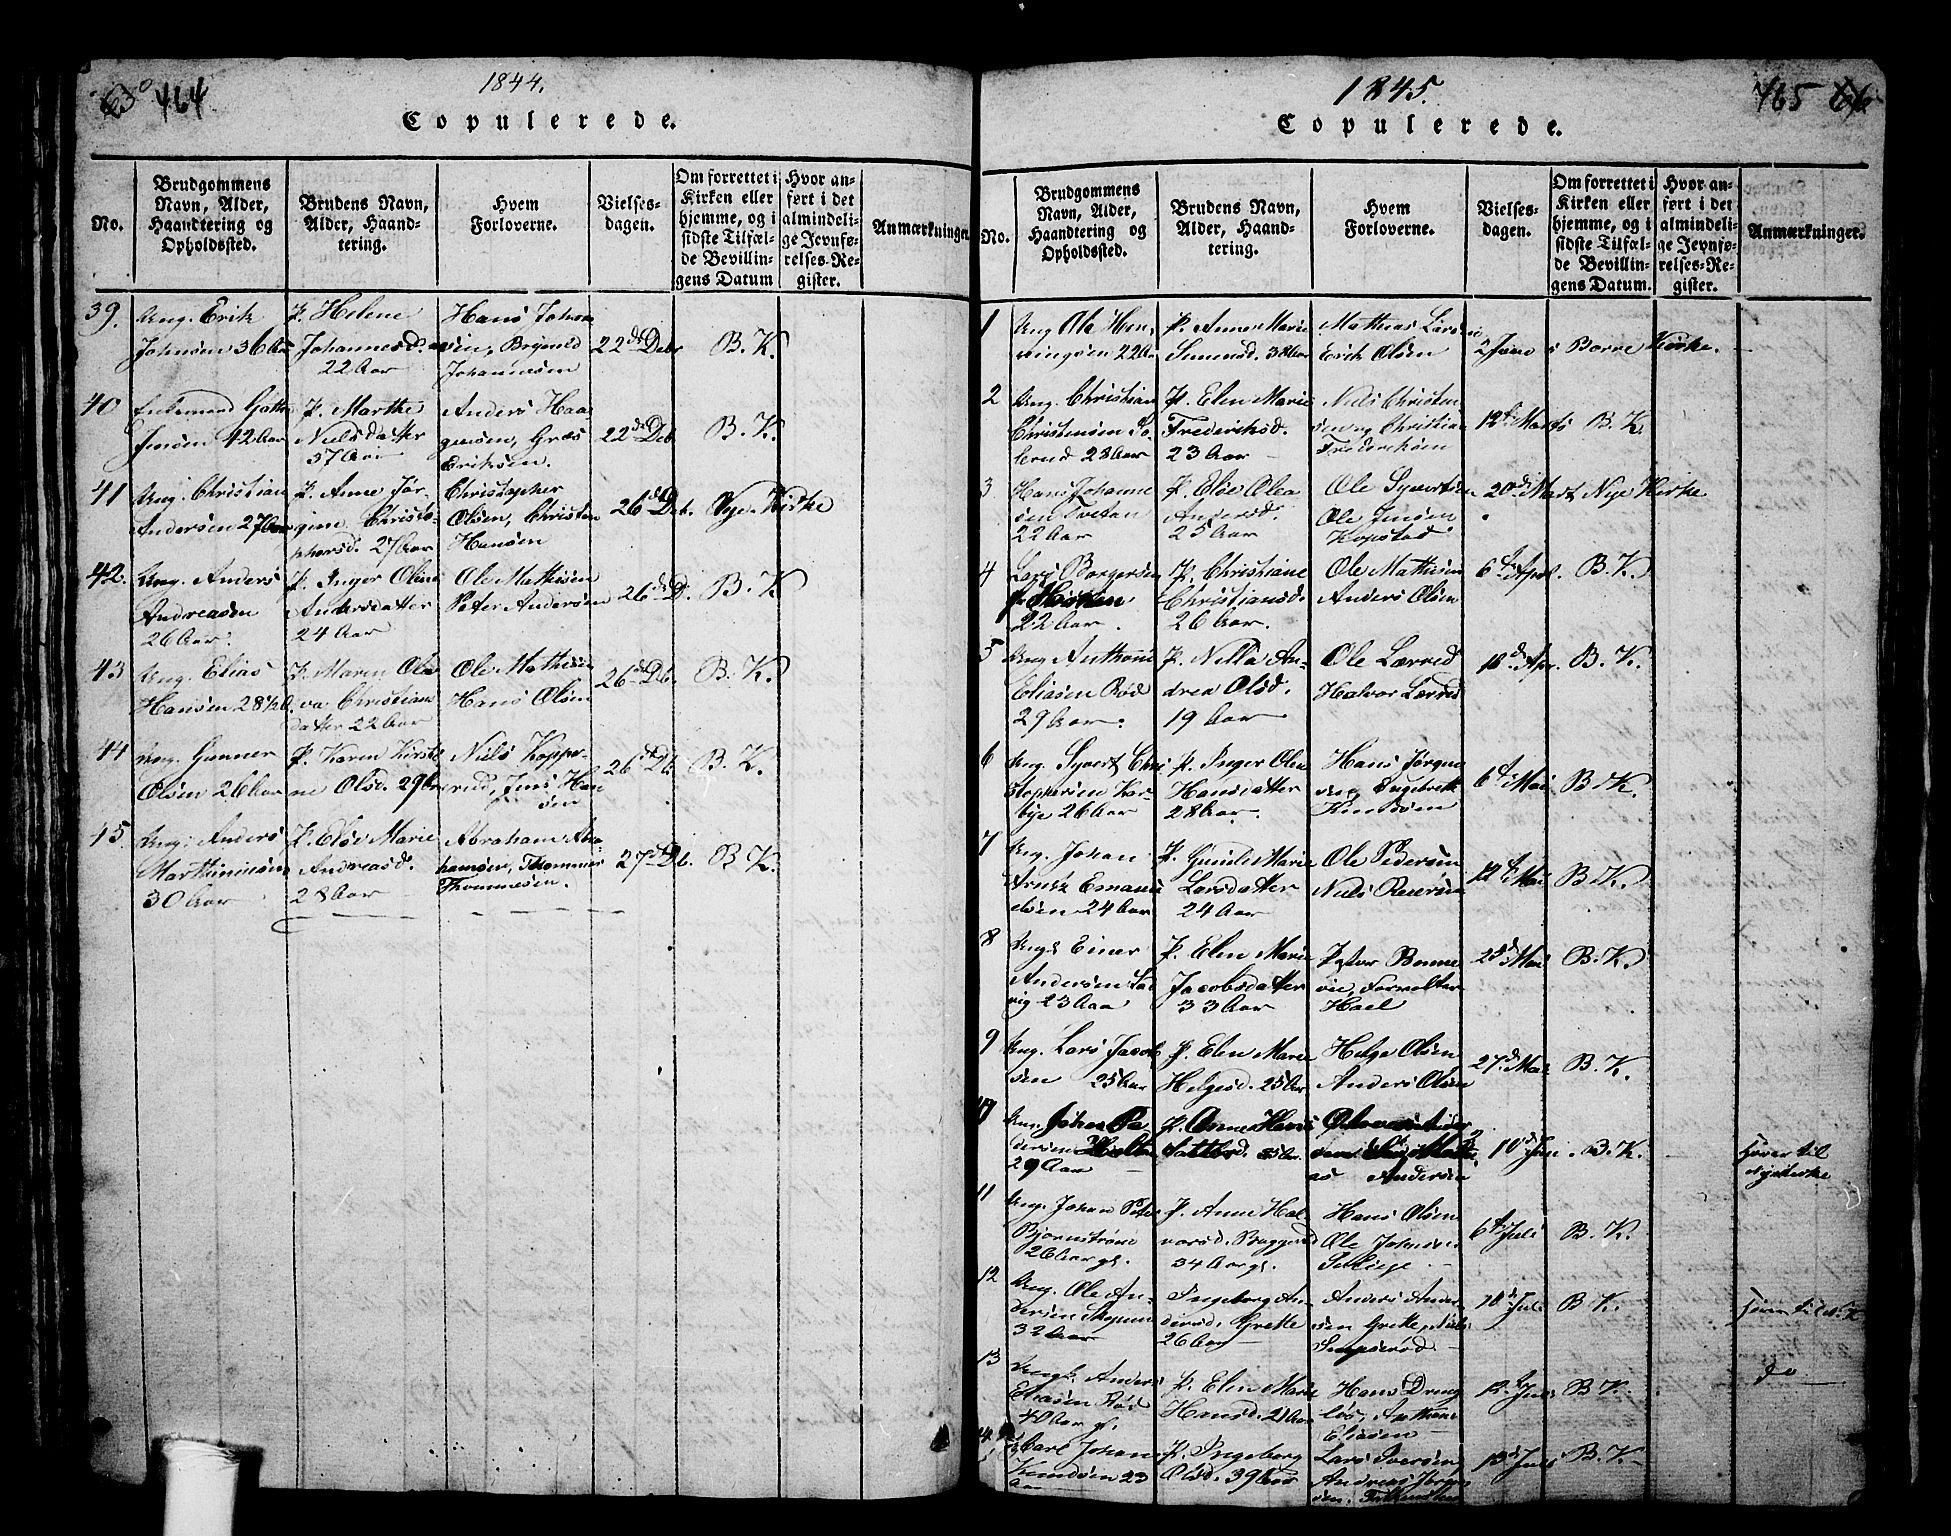 464
1844.
Copulerede.
No.
Brudgommens Navn, Alder, Haandtering og Opholdssted.
Brudens Navn, Alder, Haandtering.
Hvem Forloverne.
Vielsesdagen.
Om forrettet i Kirken eller hjemme, og i sidste Tilfælde Bevillingens Datum
Hvor anført i det almindelige Jevnførelses-Register.
Anmærkninger.
39.
Ung. Erik
Johnsen 36 Aar
P. Helene
Johannesd.
22 Aar
Hans Johan
sen, Brynild
Johannesen
22de Debr
B. K.
40
Enkemand
Jensen 42 Aar
P. Marthe
Nielsdatter
37 Aar
Anders Haa
gensen,
Eriksen.
22de Deb
B. K.
41
Ung. Christian
Andersen 27 Aar
P. Anne Jør-
gine Christo-
phersd. 27 Aar
Christopher
Olsen, Christen
Hansen
26de Deb.
Nye Kirke
42.
Ung. Anders
Andreasen
26 Aar.
P. Inger Oline
Andersdatter
24 Aar
Ole Mathisen
Peter Andersen
26de D.
B. K
43
Ung. Elias
Hansen 28½ A.
P. Maren Ola
va Christians
datter 22 Aar
Ole Mathisen
Hans Olsen
26de Db.
B. K.
44
Ung. Gunner
Olsen 26 Aar
P. Karen Kirsti
ne Olsd. 29 Aar
Niels Kopper
rud, Jens Han
sen
26de Db.
B. K.
45
Ung. Anders
Marthiniusen
30 Aar
P. Else Marie
Andreasd.
28 Aar
Abraham Abra
hamsen, Thommes
Thommesen.
27de Db.
B K.
1845.
465
Copulerede.
No.
Brudgommens Navn, Alder, Haandtering og Opholdssted.
Brudens Navn, Alder, Haandtering.
Hvem Forloverne.
Vielsesdagen.
Om forrettet i Kirken eller hjemme, og i sidste Tilfælde Bevillingens Datum.
Hvor anført i det almindelige Jevnførelses-Register.
Anmærkninger.
1
Ung Ole Hen
ningsen 22 Aar
P. Anne Marie
Simensd. 38 Aar
Mathias Larsen
Erik Olsen
2 Janr
Borre Kirke.
2
Ung. Christian
Christensen So-
lerud 28 Aar
P. Elen Marie
Frederiksd.
23 Aar
Niels Christen
sen og Christian
Frederiksen
12te Marts
B. K.
3
Hans Johanne
sen Tveten
22 Aar
P. Else Olea
Andersd.
25 Aar
Ole Syvertsen
Ole Jensen
Kopstad
20de Mart
Nye Kirke
4
Lars Borgersen
22 Aar.
P. Christiane
Christiansd.
26 Aar.
Ole Mathisen
Anders Olsen
6te Apl.
B. K.
5
Ung Anthoni
Eliasen Rød
29 Aar.
P. Nella An-
drea Olsd.
19 Aar
Ole Lærred
Halvor Lærred
18de Apr.
B. K.
6
Ung. Syvert Chri
stophersen Kar-
bye 26 Aar
P. Inger Olea
Hansdatter
28 Aar.
Hans Jørgen
sen, Ingebret
Knudsen
6te Mai
B. K.
7
Ung. Johan
Arndz Emanu
elsen 24 Aar
P. Gunild Marie
Larsdatter
24 Aar
Ole Pedersen
Niels Reiersen
12te Mai
B. K.
8
Ung. Einer
Andersen
23 Aar
P. Elen Marie
Jacobsdatter
33 Aar
Pastor Bonne
vie, Forvalter
Hoel
25de Mai
B. K.
9
Ung. Lars Jacob
sen 25 Aar
P. Elen Marie
Helgesd. 25 Aar
Helge Olsen
Anders Olsen
27de Mai
B. K.
10
Ung. Johan Pe
dersen Holtan
29 Aar
P. Anne Hans
datter
Andersen
10de Jun.
B. K.
Hører til
Nyekirke
11
Ung. Johan Peter
Bjørnstrøm
26 Aar gl.
P. Anne Hal
vorsd. Bruggerud
34 Aar gl.
Hans Olsen
Ole Johnsen
6te Juli
B. K.
12
Ung. Ole An-
dersen
32 Aar
Ingeborg An
dersd. Grette
26 Aar
Anders Ander
sen Grette, Niels
10de Juli
B K.
Hører til N. K
13
Ungk. Anders
Eliasen Rød
40 Aar gl.
P. Elen Marie
Hansd. 21 Aar
Hans
Anthoni
Eliasen
12te Juli
B K.
do
14.
Carl Johan
Knudsen 23
Aar
P. Ingeborg
Olsd. 39 Aar
Lars Iversen
Andreas Jørgen
sen.
13de Juli
B. K.